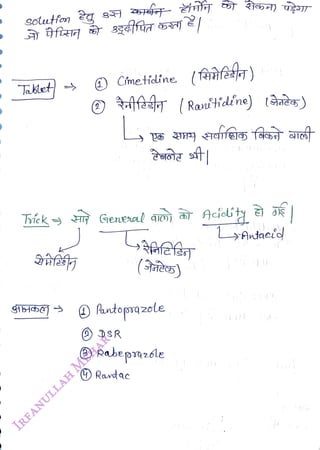 solution हेतु उस कार्बन हॉर्मोन को रोकना पड़ेगा
जो पेप्सिन को उद्दीपित करता है।
Tablet → ① Cimetidine (सिमेटिडीन)
② रैनीटिडीन (Ranitidine) (जेनटेक)
→ एक समय सर्वाधिक बिकने वाली
टेबलेट थी।
Trick → सारे General वालो को Acidity हो गई।
→ Antacid
सेमेटिडीन
रेनिटिडिन
(जेनटेक)
आजकल → ① Pantoprazole
② DSR
③ Rabeprazole
④ Rantac
IRFANULLAH